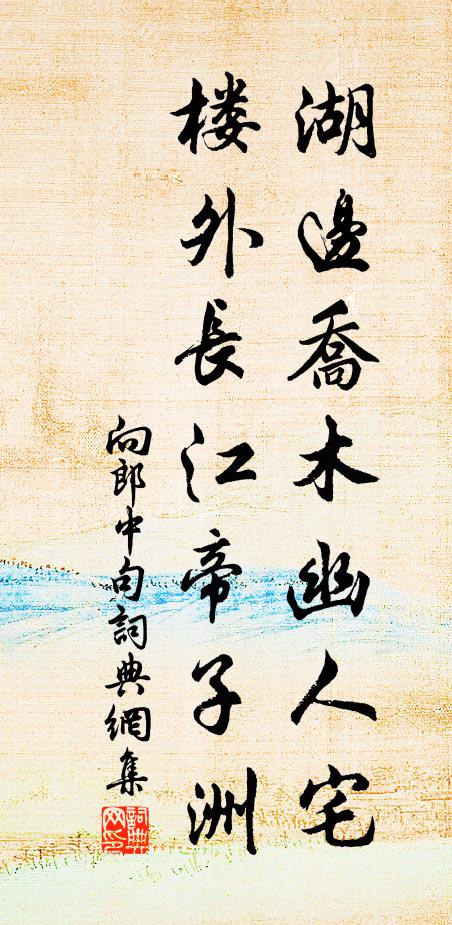 湖邊喬木幽人宅
楼外長江帝子洲
向郎中句詞典網集
詞典网印